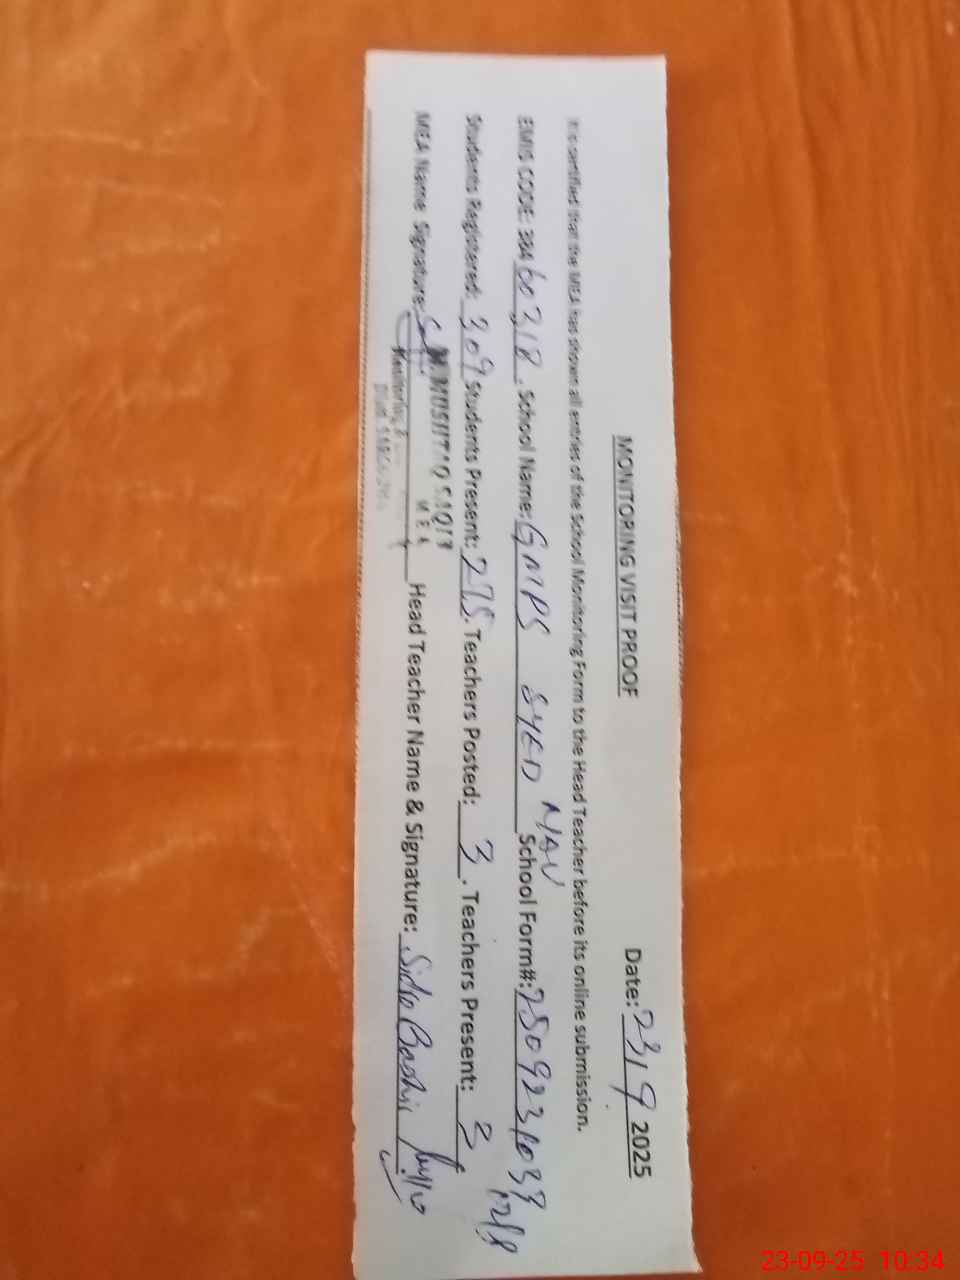 MONITORING VISIT PROOF
Date: 23/9 2025
It is certified that the MEA has shown all entries of the School Monitoring Form to the Head Teacher before its online submission.
EMIS CODE: 384 60318. School Name: GMPS SYED NAU School Form#: 2509231033
Students Registered: 309 Students Present: 275. Teachers Posted: 3. Teachers Present: 3
MEA Name Signature: Head Teacher Name & Signature: Sidra Bashir
M. MUSHTAQ SAQIB
M E A
Monitoring
Distt SARGODHA
23-09-25 10:34